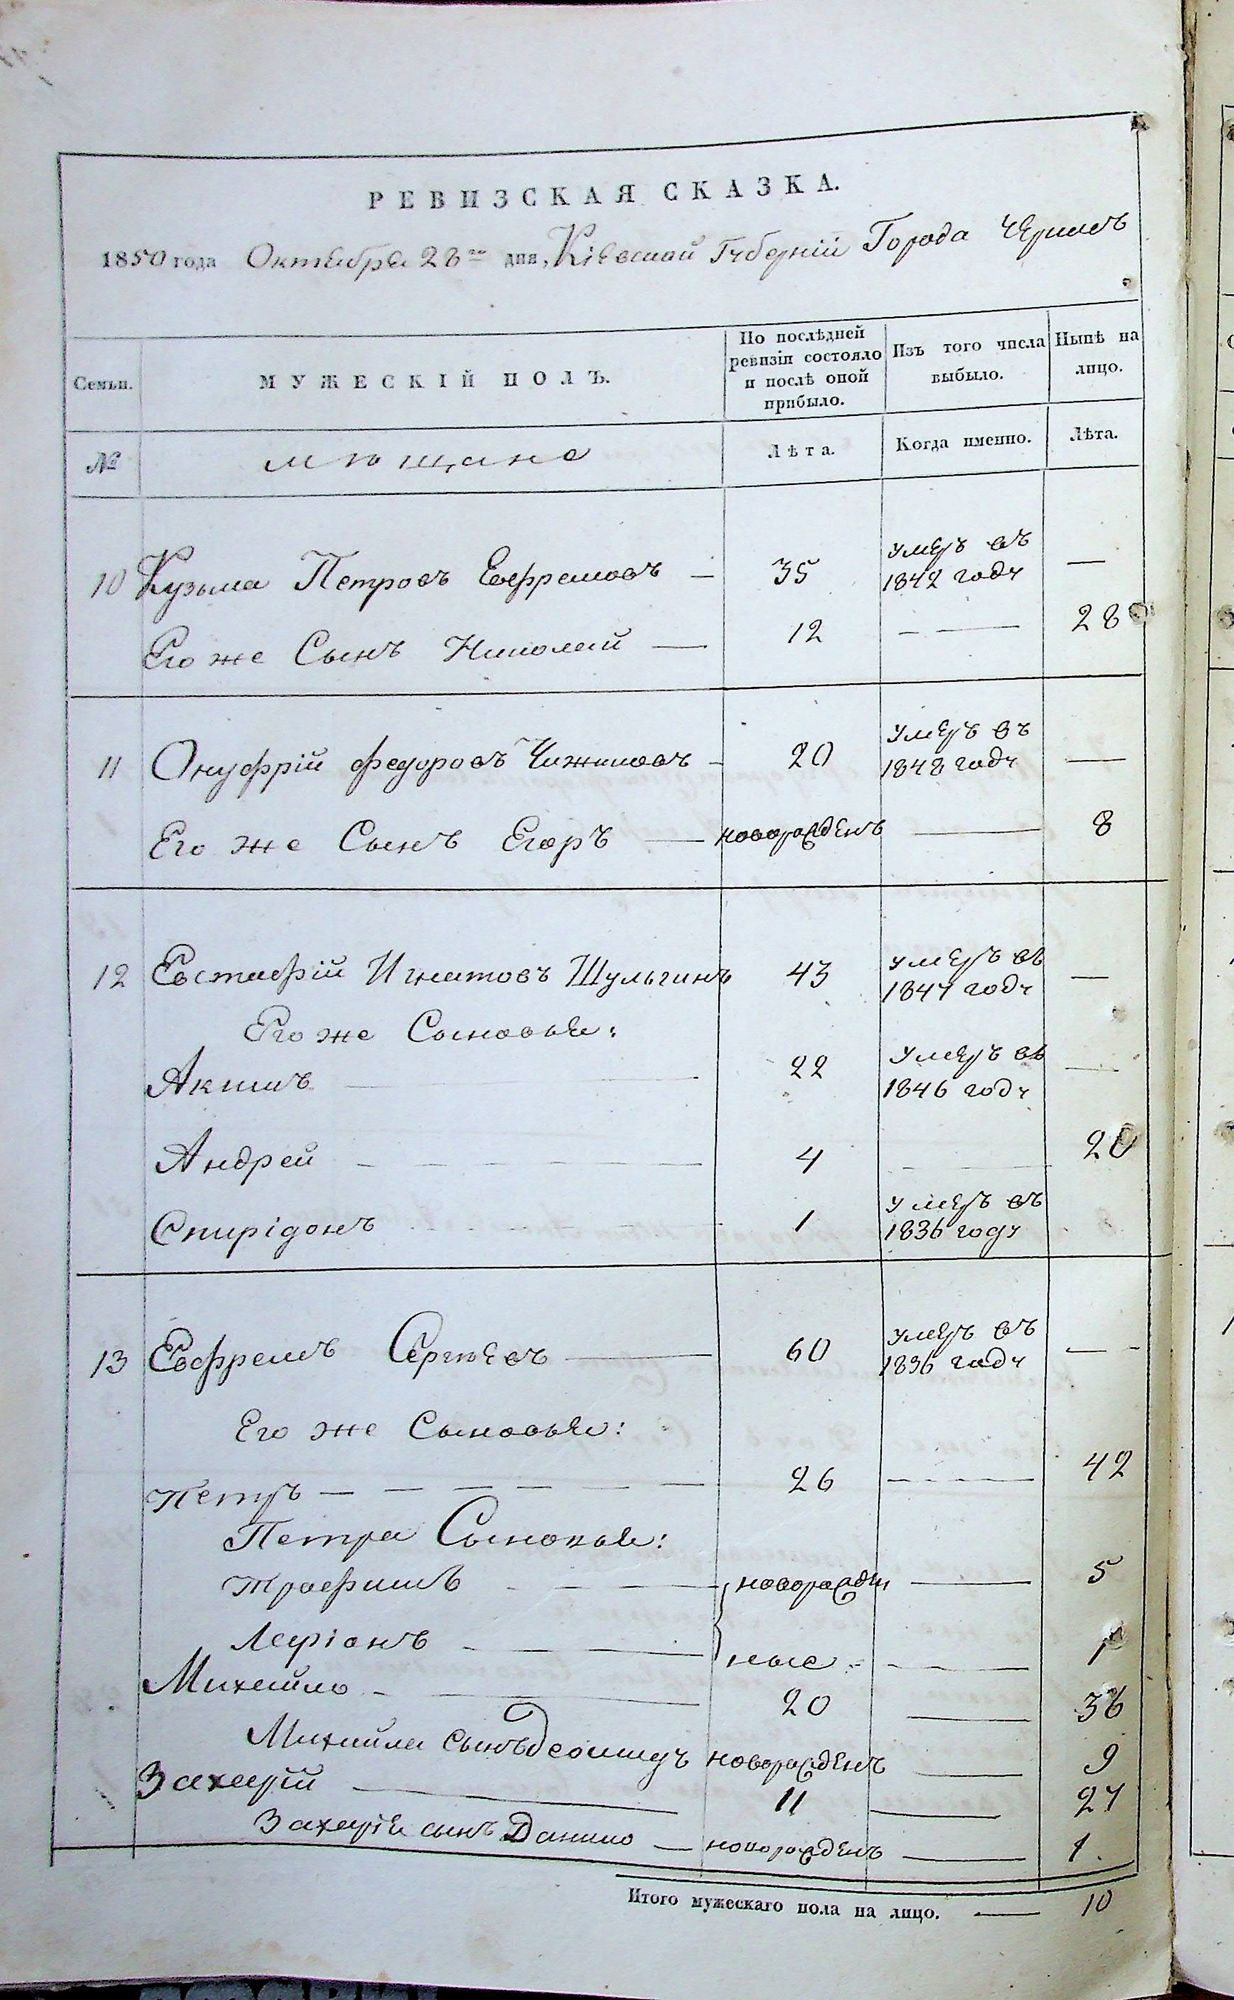 РЕВИЗСКАЯ СКАЗКА.
1850 года Октября 28го дня, Кіевской Губерніи Города
Семьи. МУЖЕСКІЙ ПОЛЪ. По послѣдней ревизіи состояло и послѣ оной прибыло. Изъ того числа выбыло. Нынѣ на лицо.
№ мѣщане Лѣта. Когда именно. Лѣта.
10 Кузьма Петровъ Евфремовъ — 35 умеръ въ 1842 году —
Его же Сынъ Николай — 12 — — 28
11 Онуфрій Федоровъ Чижиковъ - 20 умеръ въ 1848 году —
Его же Сынъ Егоръ — новорожденъ — 8
12 Евстафій Игнатовъ Шульгинъ 43 умеръ въ 1847 году —
Его же Сыновья:
Акимъ — 22 умеръ въ 1846 году —
Андрей — 4 — 20
Спиридонъ 1 умеръ въ 1836 году
13 Евфремъ Сергѣевъ — 60 умеръ въ 1836 году —
Его же Сыновья:
Петръ — 26 — 42
Петра Сыновья:
Трофимъ — новорожден — 5
Ларіонъ — ные — 1
Михайло — 20 — 36
Михайла сынъ новорожденъ — 9
Захарій — 11 — 27
Захарія сынъ Данило — новорожденъ — 1
Итого мужескаго пола на лицо. — 10